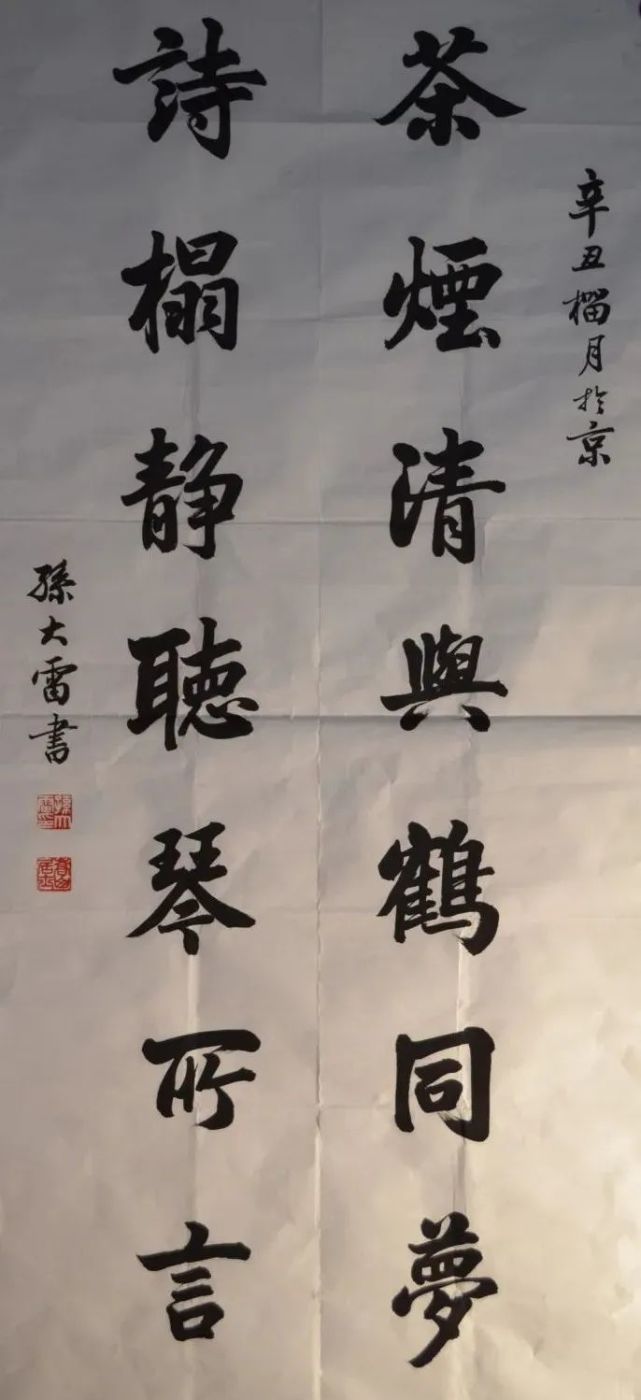 辛丑榴月於京
茶煙清與鶴同夢
詩榻静聽琴所言
孫大雷書